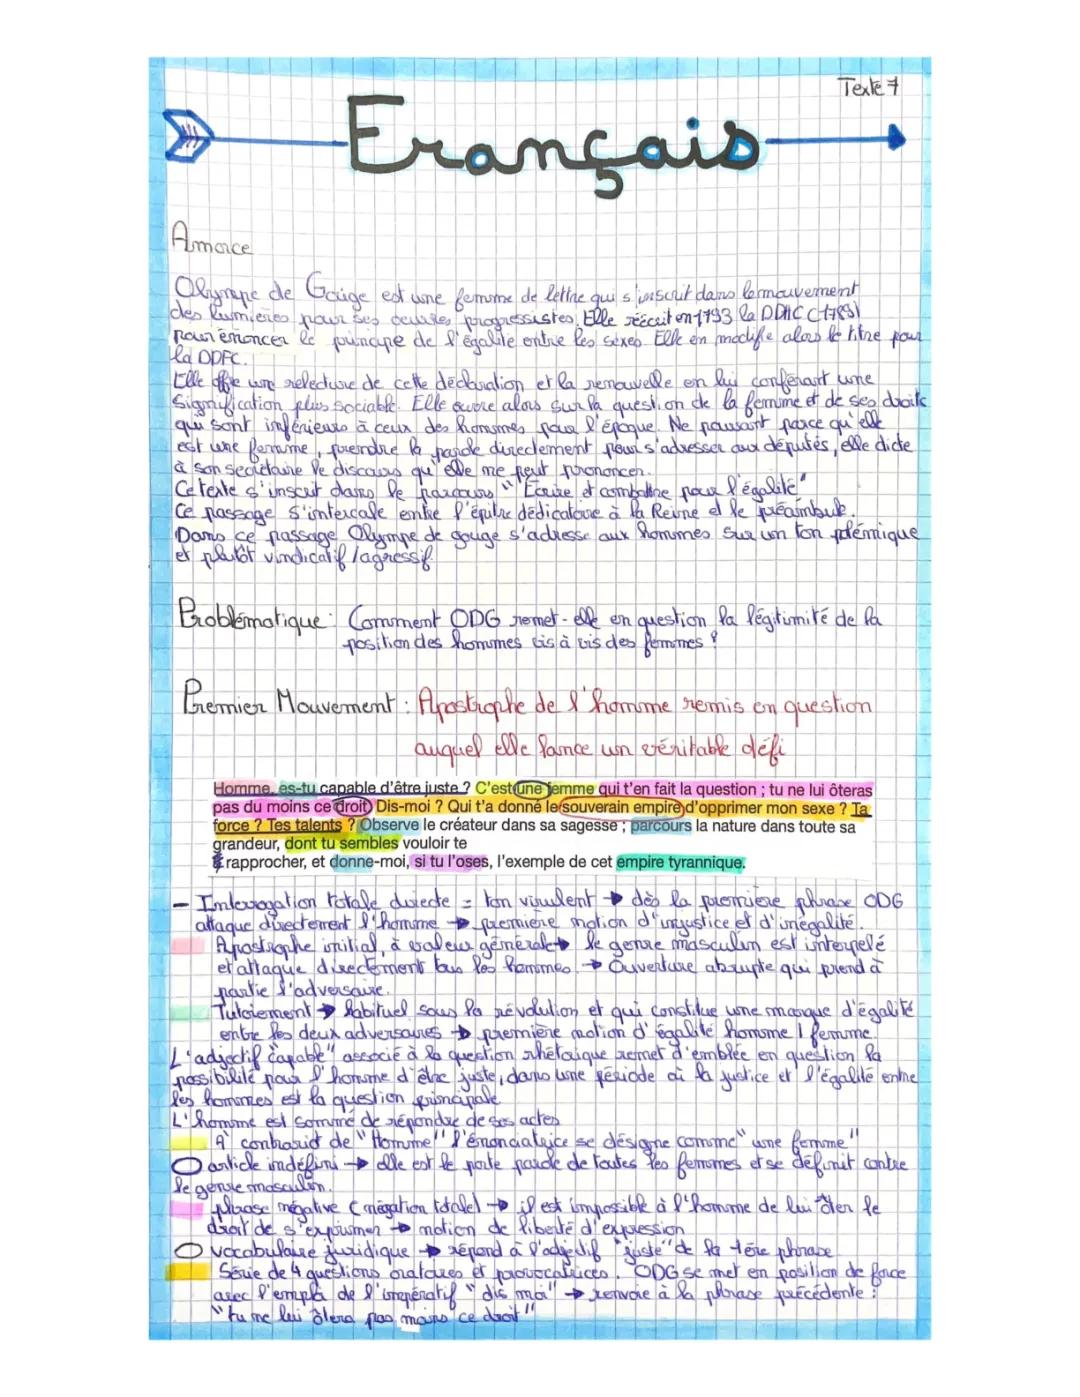 Texte 7
Français
Amorce
Olympe de Gouge est une femme de lettre qui s'inscrit dans le mouvement
des lumières pour ses oeuvres progressistes. Elle réécrit en 1793 la DDHC (1789)
pour énoncer le principe de l'égalité entre les sexes. Elle en modifie alors le titre pour
la DDFC.
Elle offre une relecture de cette déclaration et la renouvelle en lui conférant une
signification plus sociable. Elle ouvre alors sur la question de la femme et de ses droits
qui sont inférieurs à ceux des hommes pour l'époque. Ne pouvant parce qu'elle
est une femme, prendre la parole directement pour s'adresser aux députés, elle dicte
à son secrétaire le discours qu'elle ne peut prononcer.
Ce texte s'inscrit dans le parcours "Ecrire et combattre pour l'égalité"
Ce passage s'intercale entre l'épitre dédicatoire à la Reine et le préambule.
Dans ce passage Olympe de gouge s'adresse aux hommes sur un ton polémique
et plutôt vindicatif / agressif
Problématique : Comment ODG remet-elle en question la légitimité de la
position des hommes vis à vis des femmes ?
Premier Mouvement : Apostrophe de l'homme remis en question
auquel elle lance un véritable défi
Homme, es-tu capable d'être juste ? C'est une femme qui t'en fait la question ; tu ne lui ôteras
pas du moins ce droit. Dis-moi ? Qui t'a donné le souverain empire d'opprimer mon sexe ? Ta
force ? Tes talents ? Observe le créateur dans sa sagesse ; parcours la nature dans toute sa
grandeur, dont tu sembles vouloir te
rapprocher, et donne-moi, si tu l'oses, l'exemple de cet empire tyrannique.
- Interrogation totale directe = ton virulent → dès la première phrase ODG
attaque directement l'homme → première notion d'injustice et d'inégalité.
Apostrophe initial, à valeur générale → le genre masculin est interpelé
et attaque directement tous les hommes. → Ouverture abrupte qui prend à
partie l'adversaire.
Tutoiement → habituel sous la révolution et qui constitue une marque d'égalité
entre les deux adversaires → première notion d'égalité homme / femme
L'adjectif "capable" associé à la question rhétorique remet d'emblée en question la
possibilité pour l'homme d'être juste, dans une période où la justice et l'égalité entre
les hommes est la question principale
L'homme est sommé de répondre de ses actes
A contrario de "Homme" l'énonciatrice se désigne comme "une femme"
article indéfini → elle est le porte parole de toutes les femmes et se définit contre
le genre masculin.
phrase négative (négation totale) → il est impossible à l'homme de lui ôter le
droit de s'exprimer → notion de liberté d'expression
vocabulaire juridique → répond à l'adjectif "juste" de la 1ère phrase
Série de 4 questions oratoires et provocatrices. ODG se met en position de force
avec l'emploi de l'impératif "dis moi" → renvoie à la phrase précédente :
"tu ne lui ôtera pas moins ce droit"